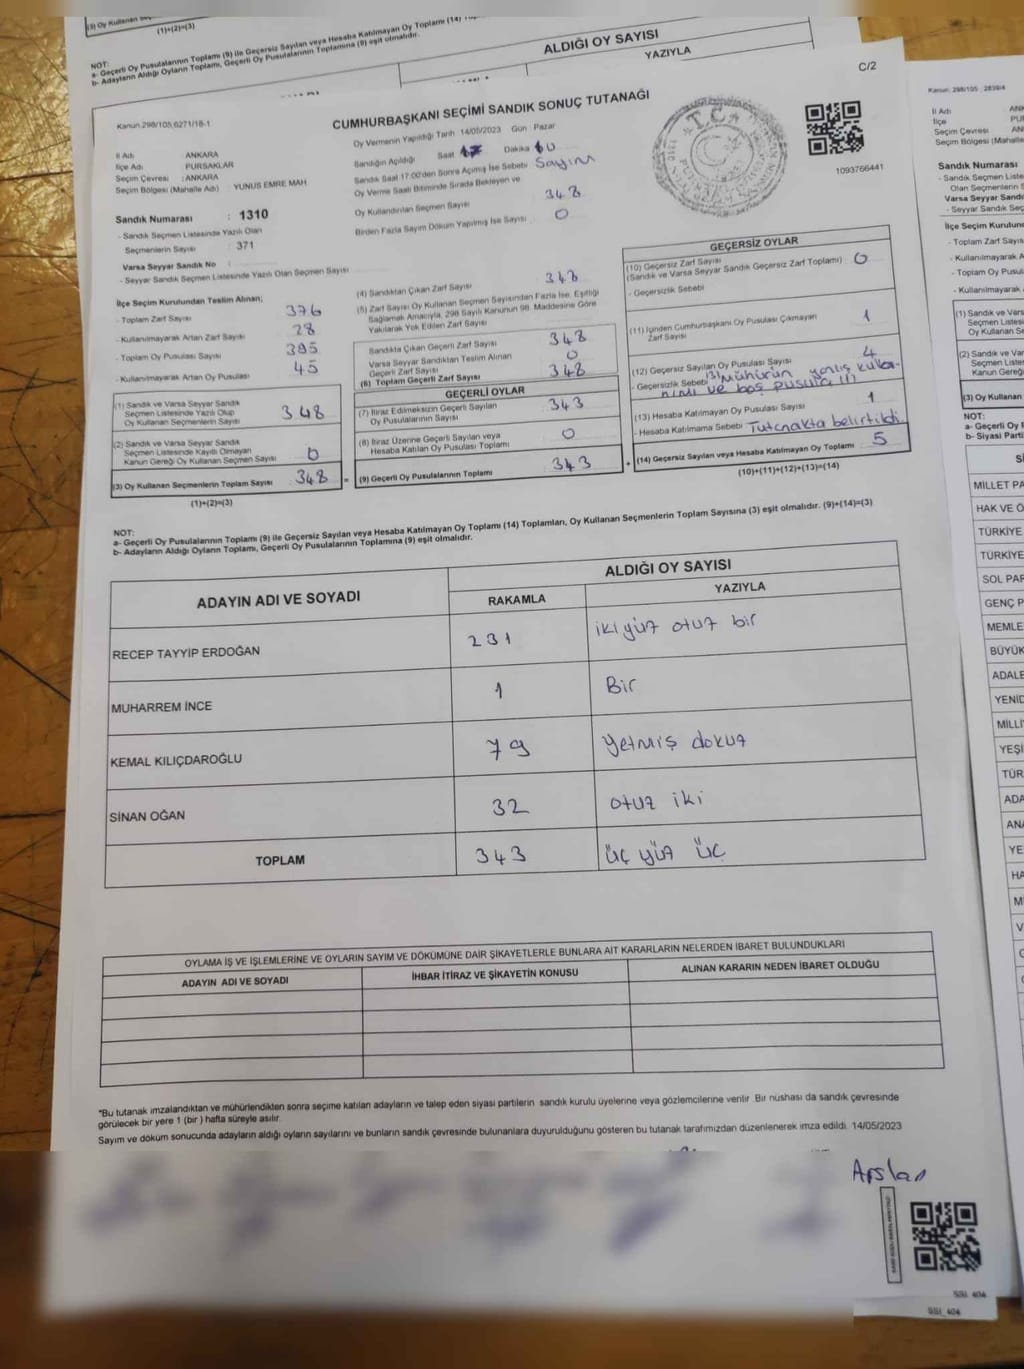 (1)+(2)=(3)
NOT:
a- Geçerli Oy Pusulalarının Toplamı (9) ile Geçersiz Sayılan veya Hesaba Katılmayan Oy Toplamı (14)
b- Adayların Aldığı Oyların Toplamı, Geçerli Oy Pusulalarının Toplamına (9) eşit olmalıdır.
ALDIĞI OY SAYISI
YAZIYLA
C/2
Kanun:298/105;6271/18-1
CUMHURBAŞKANI SEÇİMİ SANDIK SONUÇ TUTANAĞI
1093766441
İl Adı ANKARA
İlçe Adı PURSAKLAR
Seçim Çevresi : ANKARA
Seçim Bölgesi (Mahalle Adı) : YUNUS EMRE MAH.
Sandık Numarası : 1310
- Sandık Seçmen Listesinde Yazılı Olan
Seçmenlerin Sayısı : 371
Varsa Seyyar Sandık No :
- Seyyar Sandık Seçmen Listesinde Yazılı Olan Seçmen Sayısı
Oy Vermenin Yapıldığı Tarih :14/05/2023 Gün : Pazar
Sandığın Açıldığı Saat 17 Dakika
Sandık Saat 17:00'den Sonra Açılmış İse Sebebi Sayım
Oy Verme Saati Bitiminde Sırada Bekleyen ve
Oy Kullandırılan Seçmen Sayısı 348
Birden Fazla Sayım Döküm Yapılmış İse Sayısı : 0
İlçe Seçim Kurulundan Teslim Alınan;
- Toplam Zarf Sayısı 376
- Kullanılmayarak Artan Zarf Sayısı 28
- Toplam Oy Pusulası Sayısı 395
- Kullanılmayarak Artan Oy Pusulası 45
(1) Sandık ve Varsa Seyyar Sandık
Seçmen Listesinde Yazılı Olup
Oy Kullanan Seçmenlerin Sayısı 348
(2) Sandık ve Varsa Seyyar Sandık
Seçmen Listesinde Kayıtlı Olmayan
Kanun Gereği Oy Kullanan Seçmen Sayısı 0
(3) Oy Kullanan Seçmenlerin Toplam Sayısı 348
(1)+(2)=(3)
(4) Sandıktan Çıkan Zarf Sayısı 348
(5) Zarf Sayısı Oy Kullanan Seçmen Sayısından Fazla İse, Eşitliği
Sağlamak Amacıyla, 298 Sayılı Kanunun 98. Maddesine Göre
Yakılarak Yok Edilen Zarf Sayısı
Sandıkta Çıkan Geçerli Zarf Sayısı 348
Varsa Seyyar Sandıktan Teslim Alınan
Geçerli Zarf Sayısı 0
(6) Toplam Geçerli Zarf Sayısı 348
GEÇERLİ OYLAR
(7) İtiraz Edilmeksizin Geçerli Sayılan
Oy Pusulalarının Sayısı 343
(8) İtiraz Üzerine Geçerli Sayılan veya
Hesaba Katılan Oy Pusulası Toplamı 0
(9) Geçerli Oy Pusulalarının Toplamı 343
GEÇERSİZ OYLAR
(10) Geçersiz Zarf Sayısı
(Sandık ve Varsa Seyyar Sandık Geçersiz Zarf Toplamı) 0
- Geçersizlik Sebebi
(11) İçinden Cumhurbaşkanı Oy Pusulası Çıkmayan
Zarf Sayısı 1
(12) Geçersiz Sayılan Oy Pusulası Sayısı 4
- Geçersizlik Sebebi (3) Mühürün yanlış kulla-
nımı ve boş pusula (1)
(13) Hesaba Katılmayan Oy Pusulası Sayısı 1
- Hesaba Katılmama Sebebi Tutanakta belirtildi
(14) Geçersiz Sayılan veya Hesaba Katılmayan Oy Toplamı 5
(10)+(11)+(12)+(13)=(14)
NOT:
a- Geçerli Oy Pusulalarının Toplamı (9) ile Geçersiz Sayılan veya Hesaba Katılmayan Oy Toplamı (14) Toplamları, Oy Kullanan Seçmenlerin Toplam Sayısına (3) eşit olmalıdır. (9)+(14)=(3)
b- Adayların Aldığı Oyların Toplamı, Geçerli Oy Pusulalarının Toplamına (9) eşit olmalıdır.
ADAYIN ADI VE SOYADI
ALDIĞI OY SAYISI
RAKAMLA YAZIYLA
RECEP TAYYİP ERDOĞAN 231 ikiyüz otuz bir
MUHARREM İNCE 1 Bir
KEMAL KILIÇDAROĞLU 79 yetmiş dokuz
SİNAN OĞAN 32 otuz iki
TOPLAM 343 üç yüz üç
OYLAMA İŞ VE İŞLEMLERİNE VE OYLARIN SAYIM VE DÖKÜMÜNE DAİR ŞİKAYETLERLE BUNLARA AİT KARARLARIN NELERDEN İBARET BULUNDUKLARI
ADAYIN ADI VE SOYADI İHBAR İTİRAZ VE ŞİKAYETİN KONUSU ALINAN KARARIN NEDEN İBARET OLDUĞU
*Bu tutanak imzalandıktan ve mühürlendikten sonra seçime katılan adayların ve talep eden siyasi partilerin sandık kurulu üyelerine veya gözlemcilerine verilir. Bir nüshası da sandık çevresinde
görülecek bir yere 1 (bir) hafta süreyle asılır.
Sayım ve döküm sonucunda adayların aldığı oyların sayılarını ve bunların sandık çevresinde bulunanlara duyurulduğunu gösteren bu tutanak tarafımızdan düzenlenerek imza edildi. 14/05/2023
Arslan
SSI_404
SSI_404
Kanun: 298/105 ; 2839/4
İl Adı
İlçe
Seçim Çevresi
Seçim Bölgesi (Mahalle
Sandık Numarası
- Sandık Seçmen Liste
Olan Seçmenlerin S
Varsa Seyyar Sandı
- Seyyar Sandık Seç
İlçe Seçim Kurulun
- Toplam Zarf Sayıs
- Kullanılmayarak
- Toplam Oy Pusul
- Kullanılmayarak
(1) Sandık ve Vars
Seçmen Listesi
Oy Kullanan S
(2) Sandık ve Var
Seçmen Liste
Kanun Gere
(3) Oy Kullanan
NOT:
a- Geçerli Oy
b- Siyasi Parti
MİLLET PA
HAK VE Ö
TÜRKİYE
TÜRKİYE
SOL PAR
GENÇ P
MEMLE
BÜYÜK
ADALE
YENİD
MİLLİ
YEŞİ
TÜR
ADA
AN
YE
HA